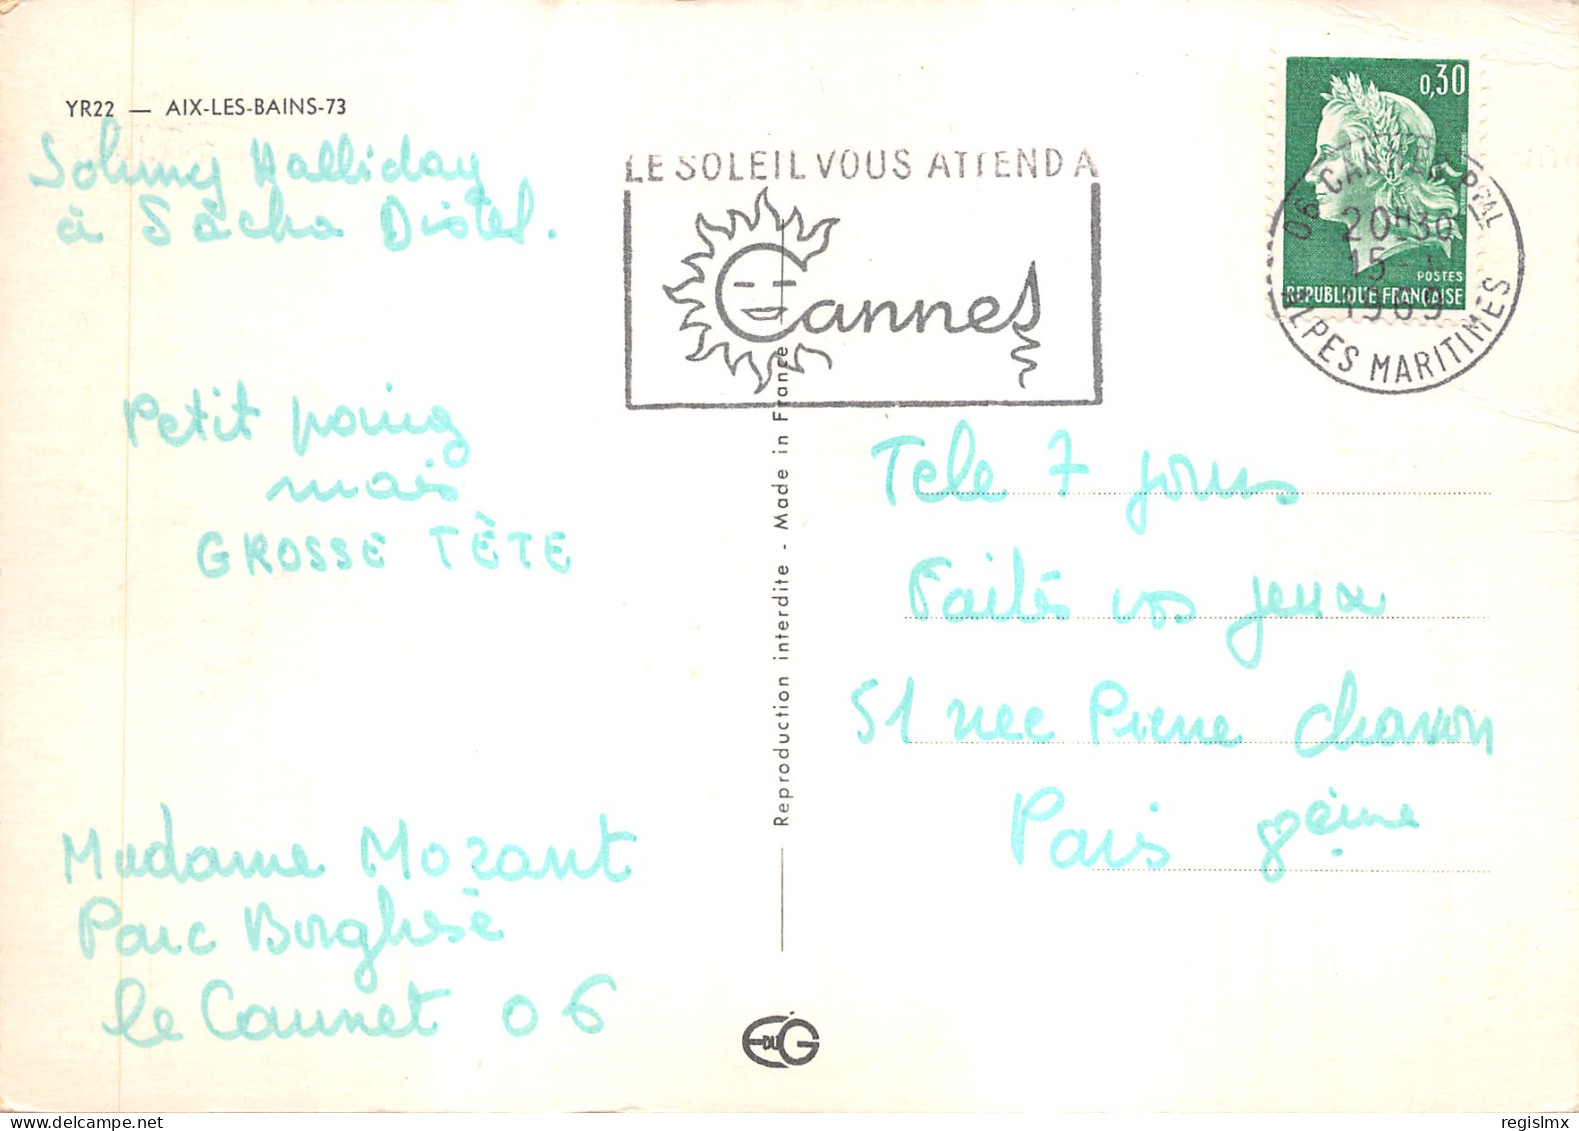 YR22 — AIX-LES-BAINS-73
Johnny Halliday
à Sacha Distel.
Petit poing
mais
GROSSE TÊTE
Madame Mozant
Parc Borghèse
le Cannet 06
LE SOLEIL VOUS ATTEND A
Cannes
0,30
POSTES
REPUBLIQUE FRANÇAISE
06 CANNES PPAL
20H30
15 -
1969
ALPES MARITIMES
Reproduction interdite - Made in France
Tele 7 jours
Faites vos jeux
51 rue Pierre charron
Paris 8ème
EDUG
regislmx